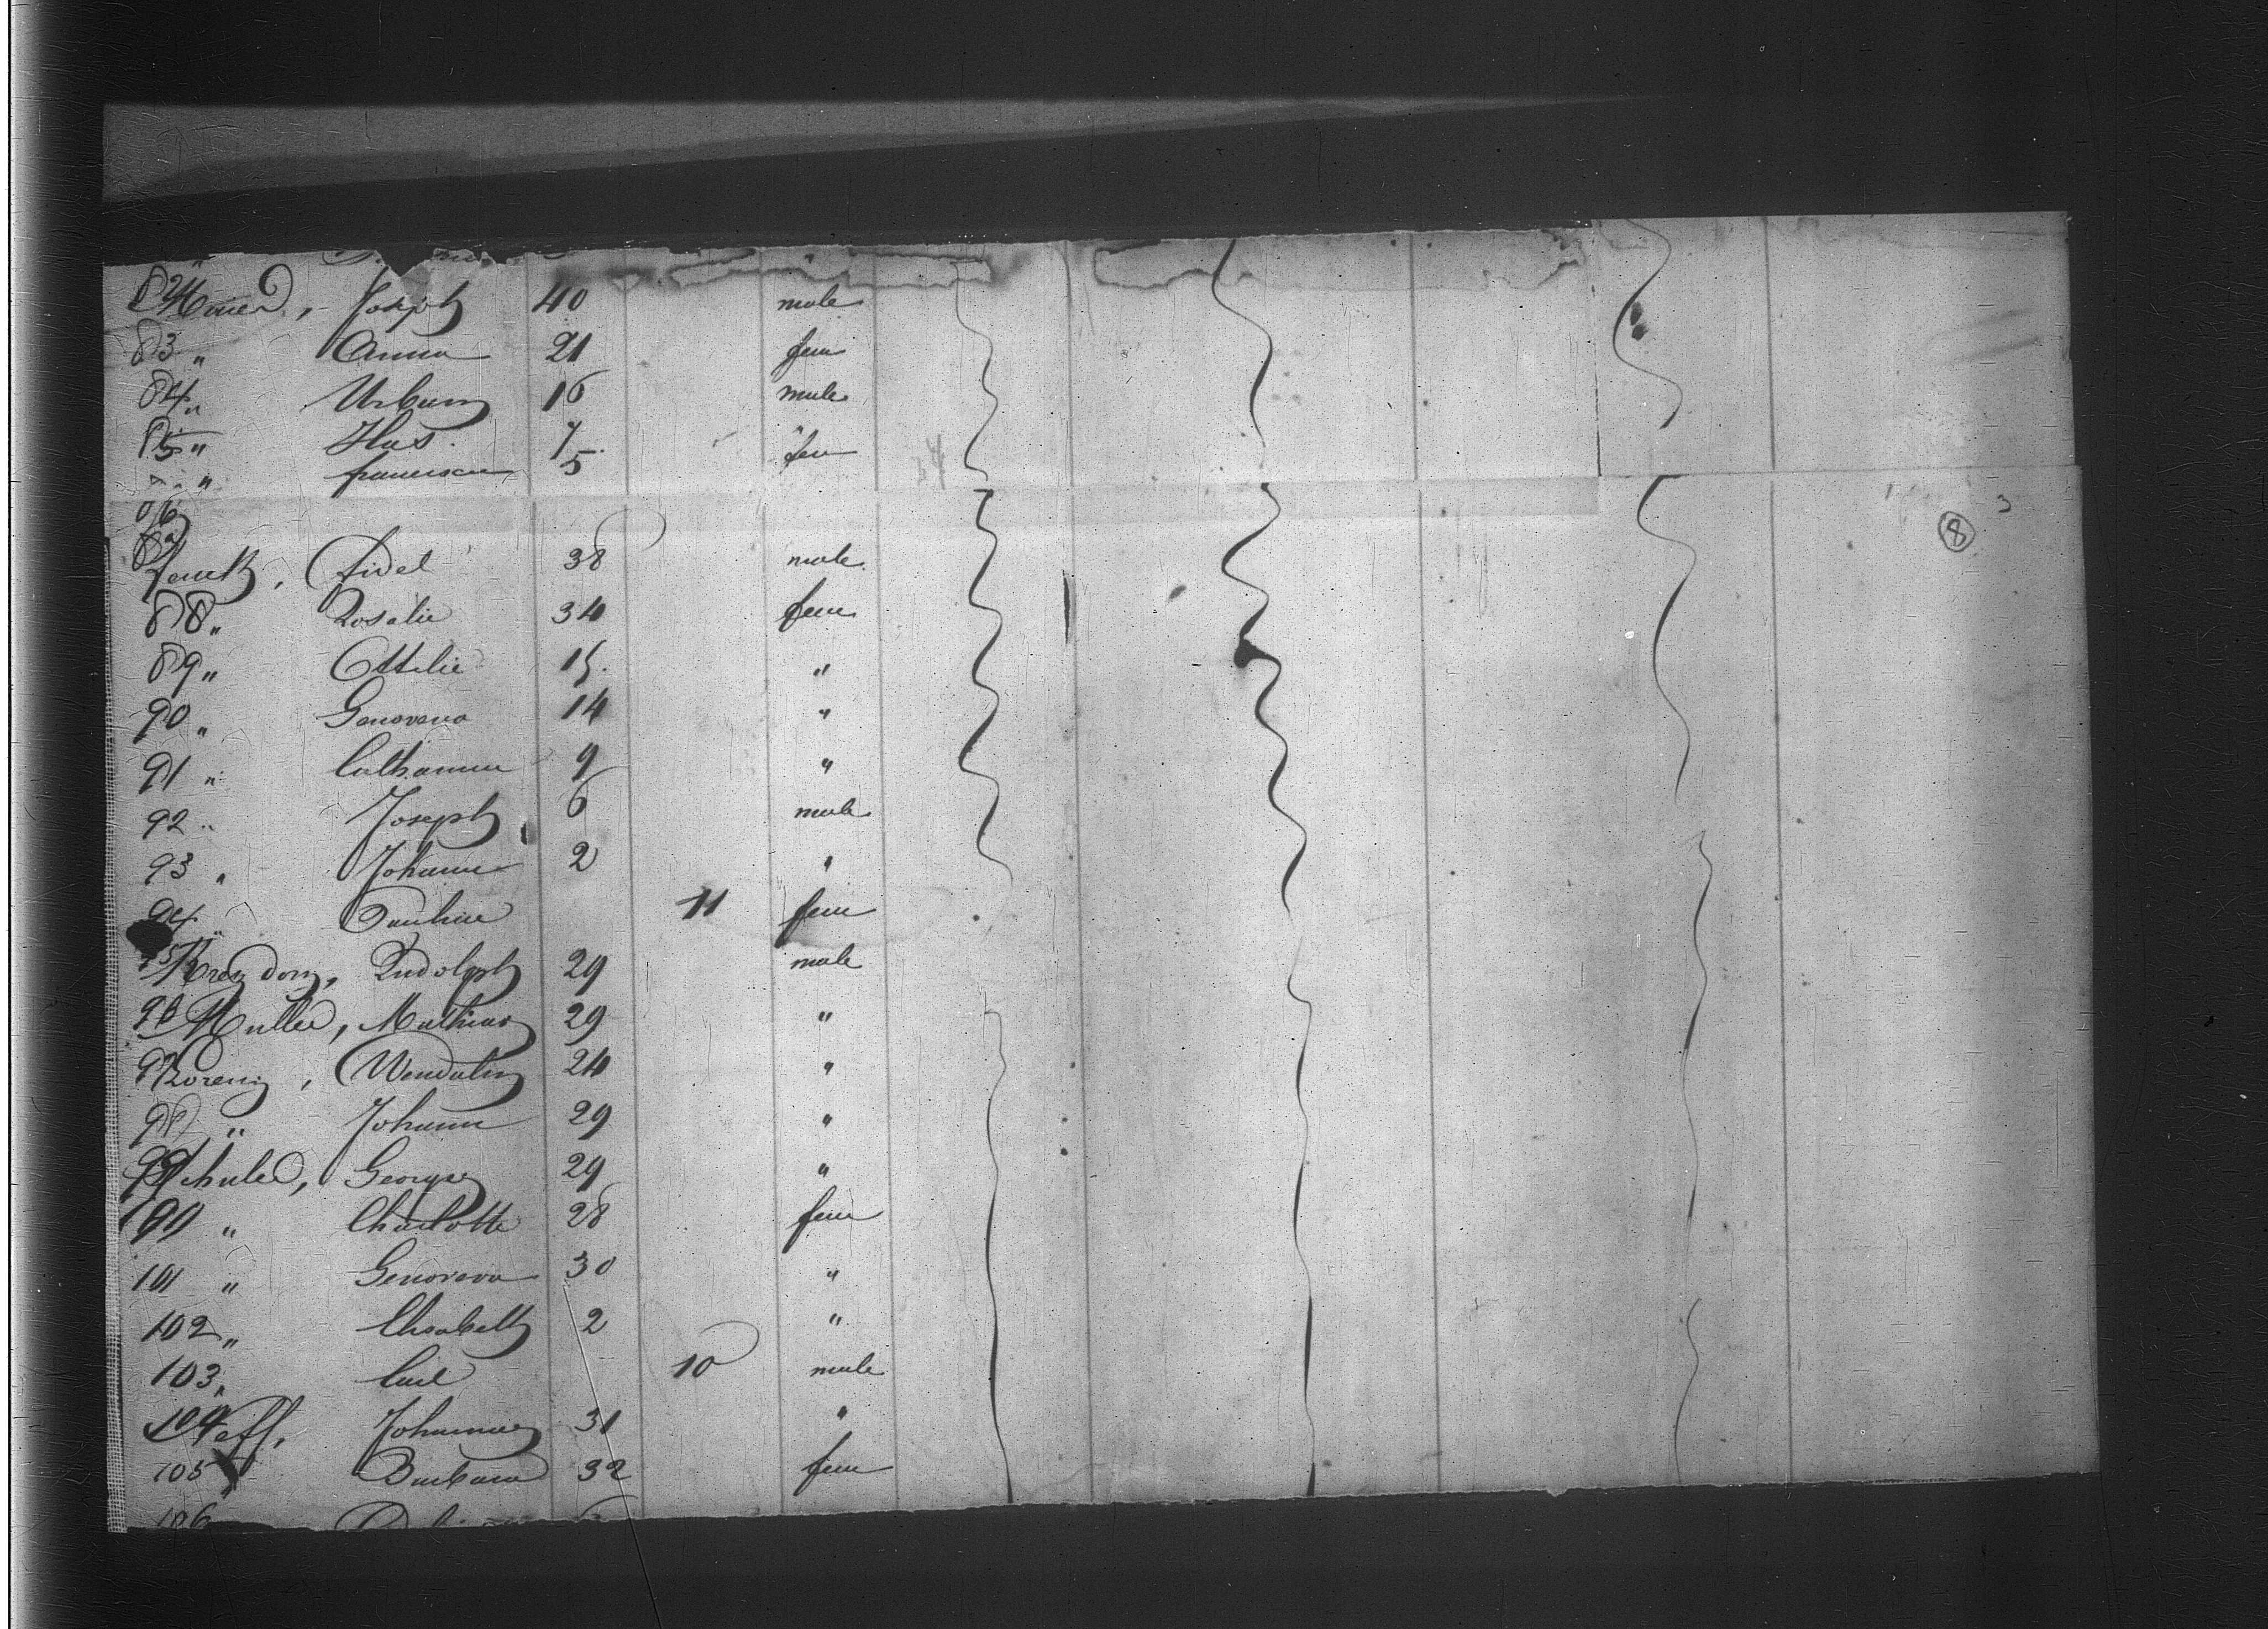 82 Joseph 40 male
83 " Anna 21 fem
84 " Urban 16 male
85 " 7 "
" francisca 5 fem
86
87
Fidel 38 male
88 " Rosalie 34 fem
89 " Ottilie 15. "
90 " Genoveva 14 "
91 " Catharina 9 "
92 " Joseph 6 male
93 " Johann 2 "
94 " Pauline 11 fem
95 Rudolph 29 male
96 Muller, Mathias 29 "
97 Wendalin 24 "
98 " Johann 29 "
99 Schuler, George 29 "
" Charlotte 28 fem
101 " Genoveva 30 "
102 " Elisabeth 2 "
103 " Carl 10 male
104 Neff, Johannes 31 "
105 " Barbara 32 fem
106
8
3